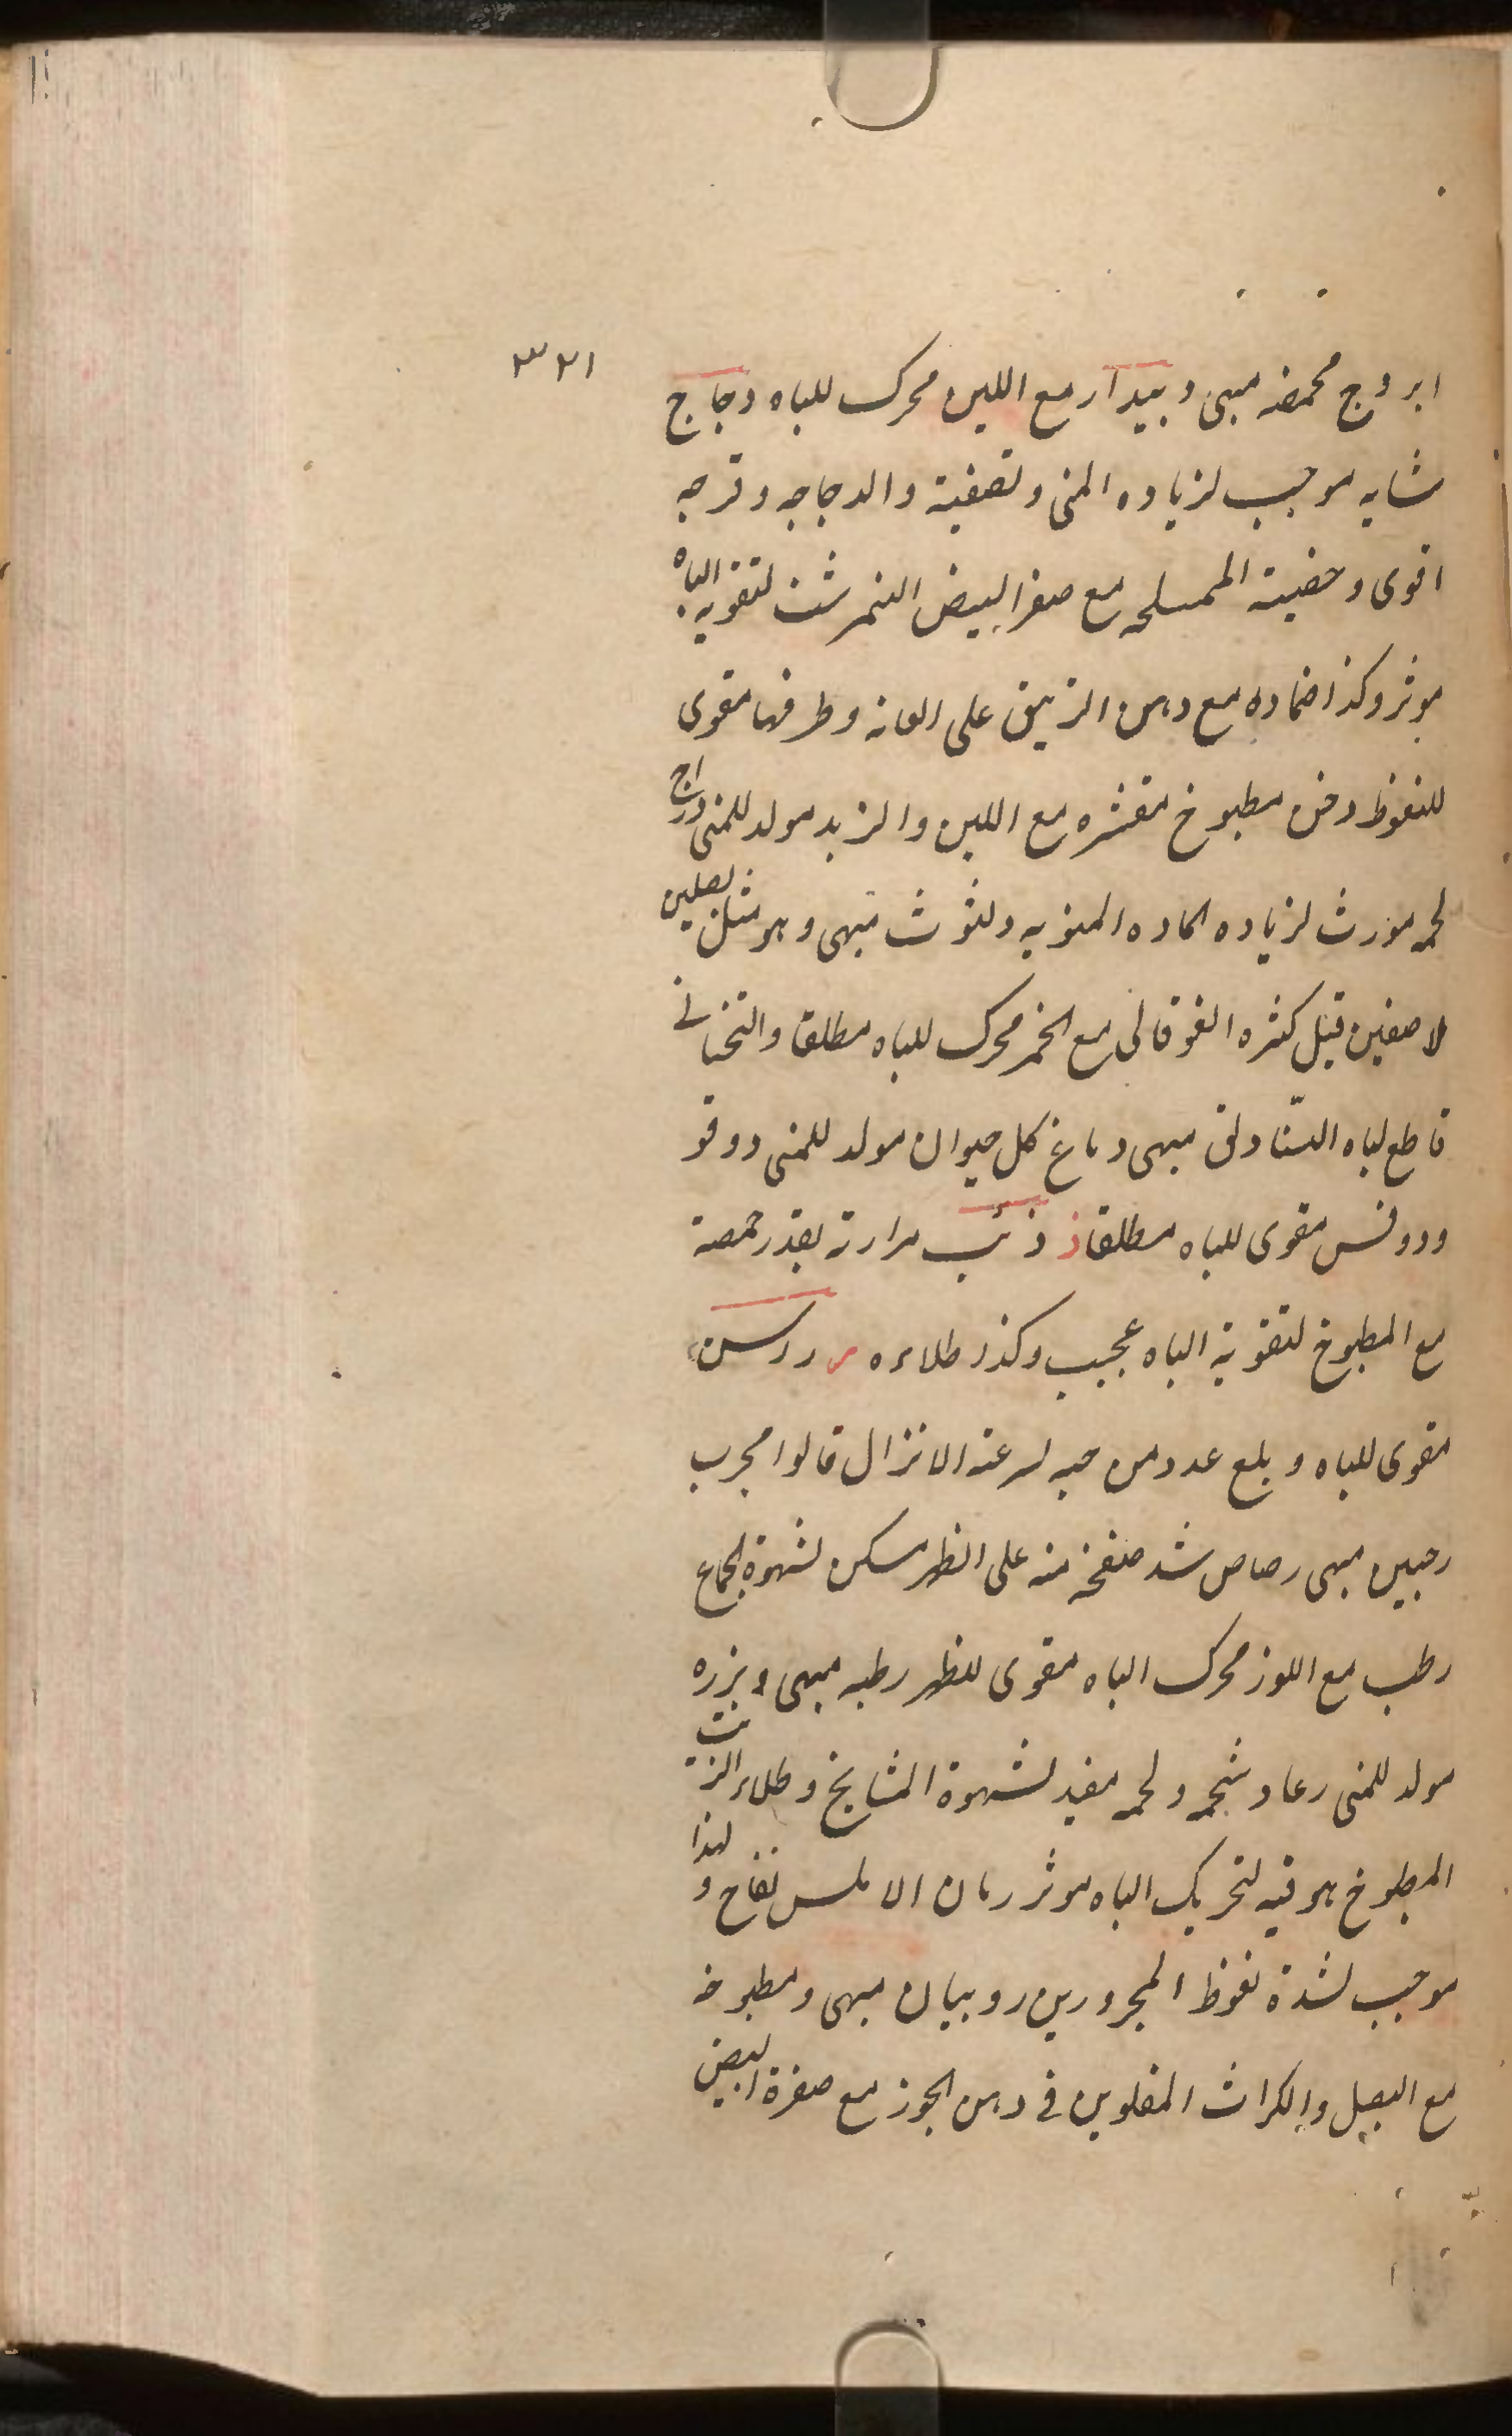 ٣٢١
ابروج محمضه مبهى وبيدار مع اللبن محرك للباه دجاج
شابه موجب لزياده المنى وتصفية والدجاجه وفرجه
اقوى وخصيته المملحه مع صفر البيض النمرشت لتقويه الباه
موثر وكذا ضماده مع دهن الزنبق على العانه وطرفها مقوى
للنغوظ دخن مطبوخ مقشره مع اللبن والزبد مولد للمنى دراج
لحمه مورث لزياده الماده المنويه دلبوث مبهى وهو مثل بصلين
لاصقين قيل كثره الفوقانى مع الخمر محرك للباه مطلقا والتحتانى
قاطع لباه النسا دلق مبهى دماغ كل حيوان مولد للمنى دوقو
ودوقس مقوى للباه مطلقا ذ ذئب مرارته بقدر حمصة
مع المطبوخ لتقوية الباه عجيب وكذا طلاءه ر راسن
مقوى للباه وبلع عدد من حبه لسرعة الانزال قالوا مجرب
رجبين مبهى رصاص شد صفحة منه على الظهر مسكن لشهوة الجماع
رطب مع اللوز محرك الباه مقوى للظهر رطبه مبهى وبزره
مولد للمنى رعاد شحمه ولحمه مفيد لشهوة المشايخ وطلاء الزيت
المطبوخ هو فيه لتحريك الباه موثر رمان الاملس نفاخ ولهذا
موجب لشدة نغوظ المحرورين روبيان مبهى ومطبوخه
مع البصل والكراث المقلوين فى دهن الجوز مع صفرة البيض